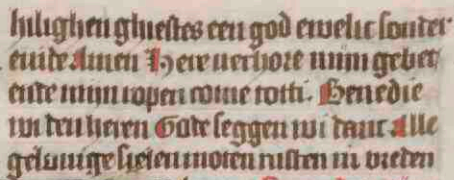 hilighen ghiestes een god ewelic sonder
einde Amen Here verhore mijn gebet
ende mijn ropen come totti. Benedie
wi den heren Gode seggen wi danc Alle
gelouige sielen moten rusten in vreden